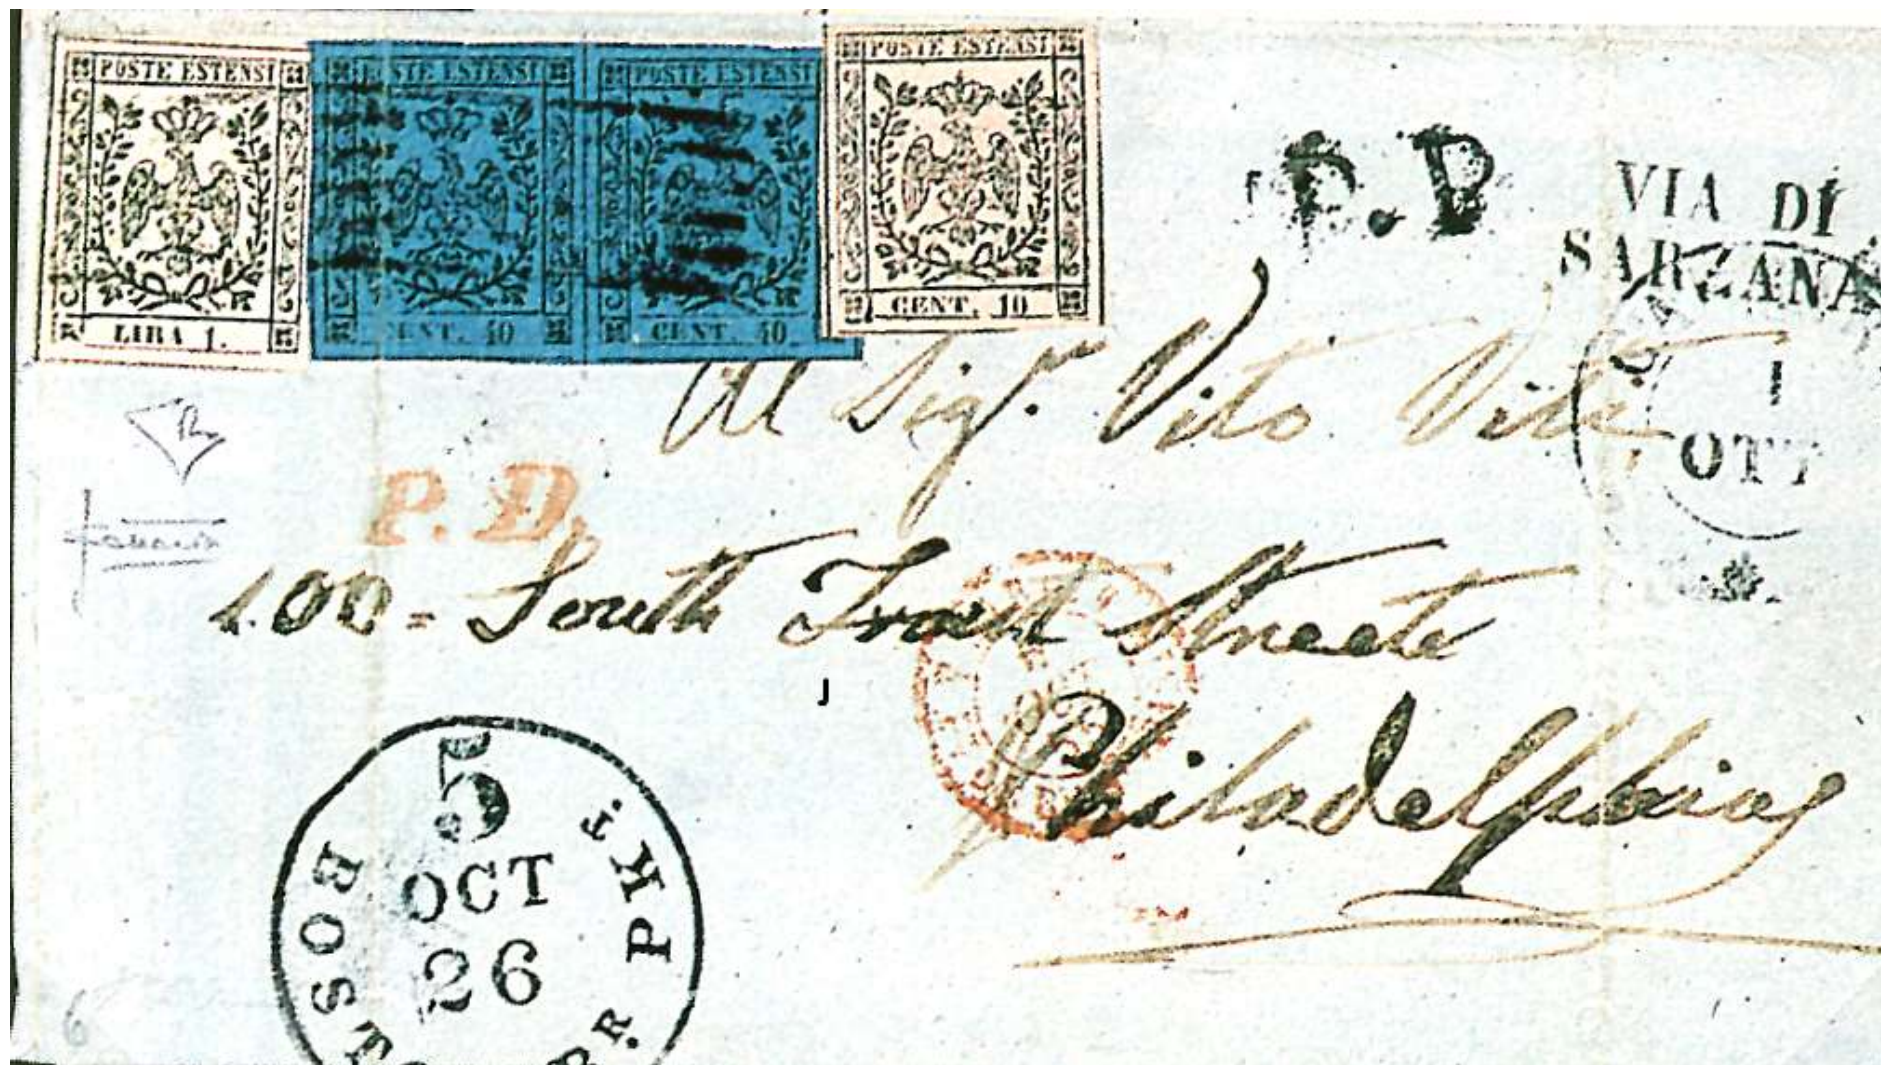 POSTE ESTENSI
LIRA 1.
POSTE ESTENSI
CENT. 40
POSTE ESTENSI
CENT. 40
POSTE ESTENSI
CENT. 10
P.D
VIA DI
SARZANA
CARRARA
1
OTT
Al Sigr. Vito Viti
P.D.
100 = South Front Streete
J
Philadelphia
5
OCT
26
BOSTON BR. PKT.
6